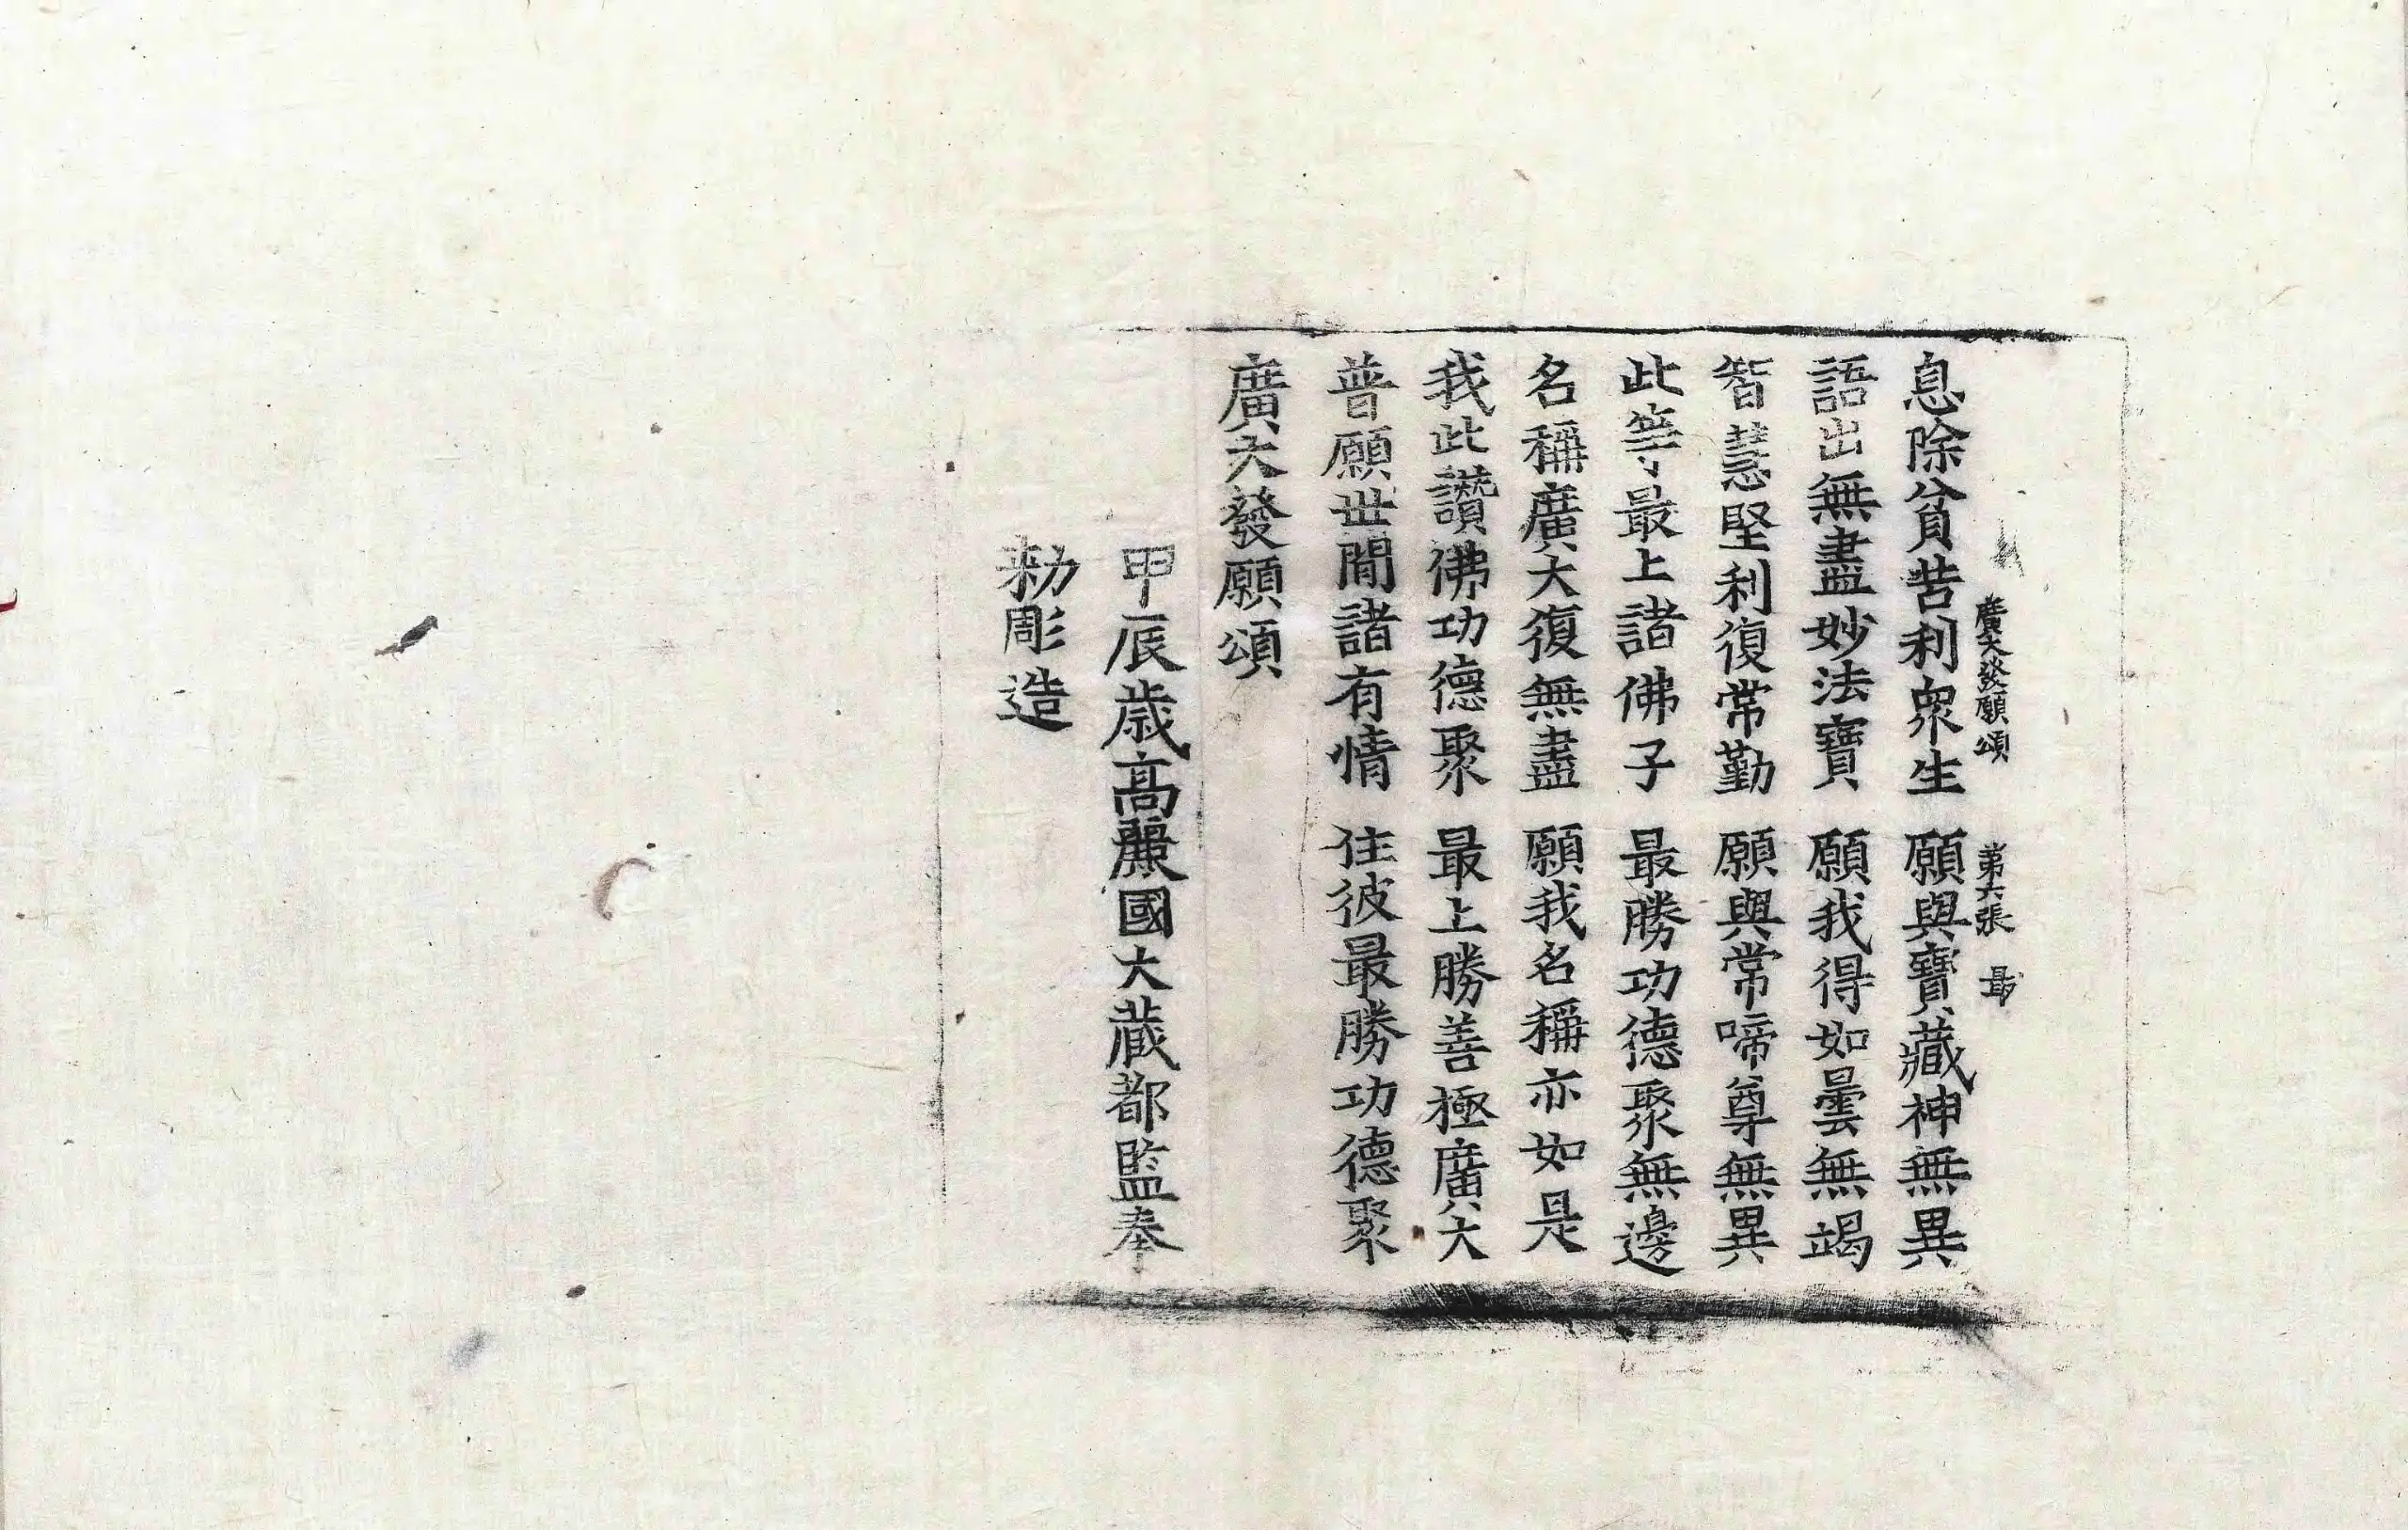 廣大發願頌 第六張 最
息除貧苦利衆生 願與寶藏神無異
語出無盡妙法寶 願我得如曇無竭
智慧堅利復常勤 願與常啼尊無異
此等最上諸佛子 最勝功德聚無邊
名稱廣大復無盡 願我名稱亦如是
我此讚佛功德聚 最上勝善極廣大
普願世間諸有情 住彼最勝功德聚
廣大發願頌
甲辰歲高麗國大藏都監奉
勅彫造